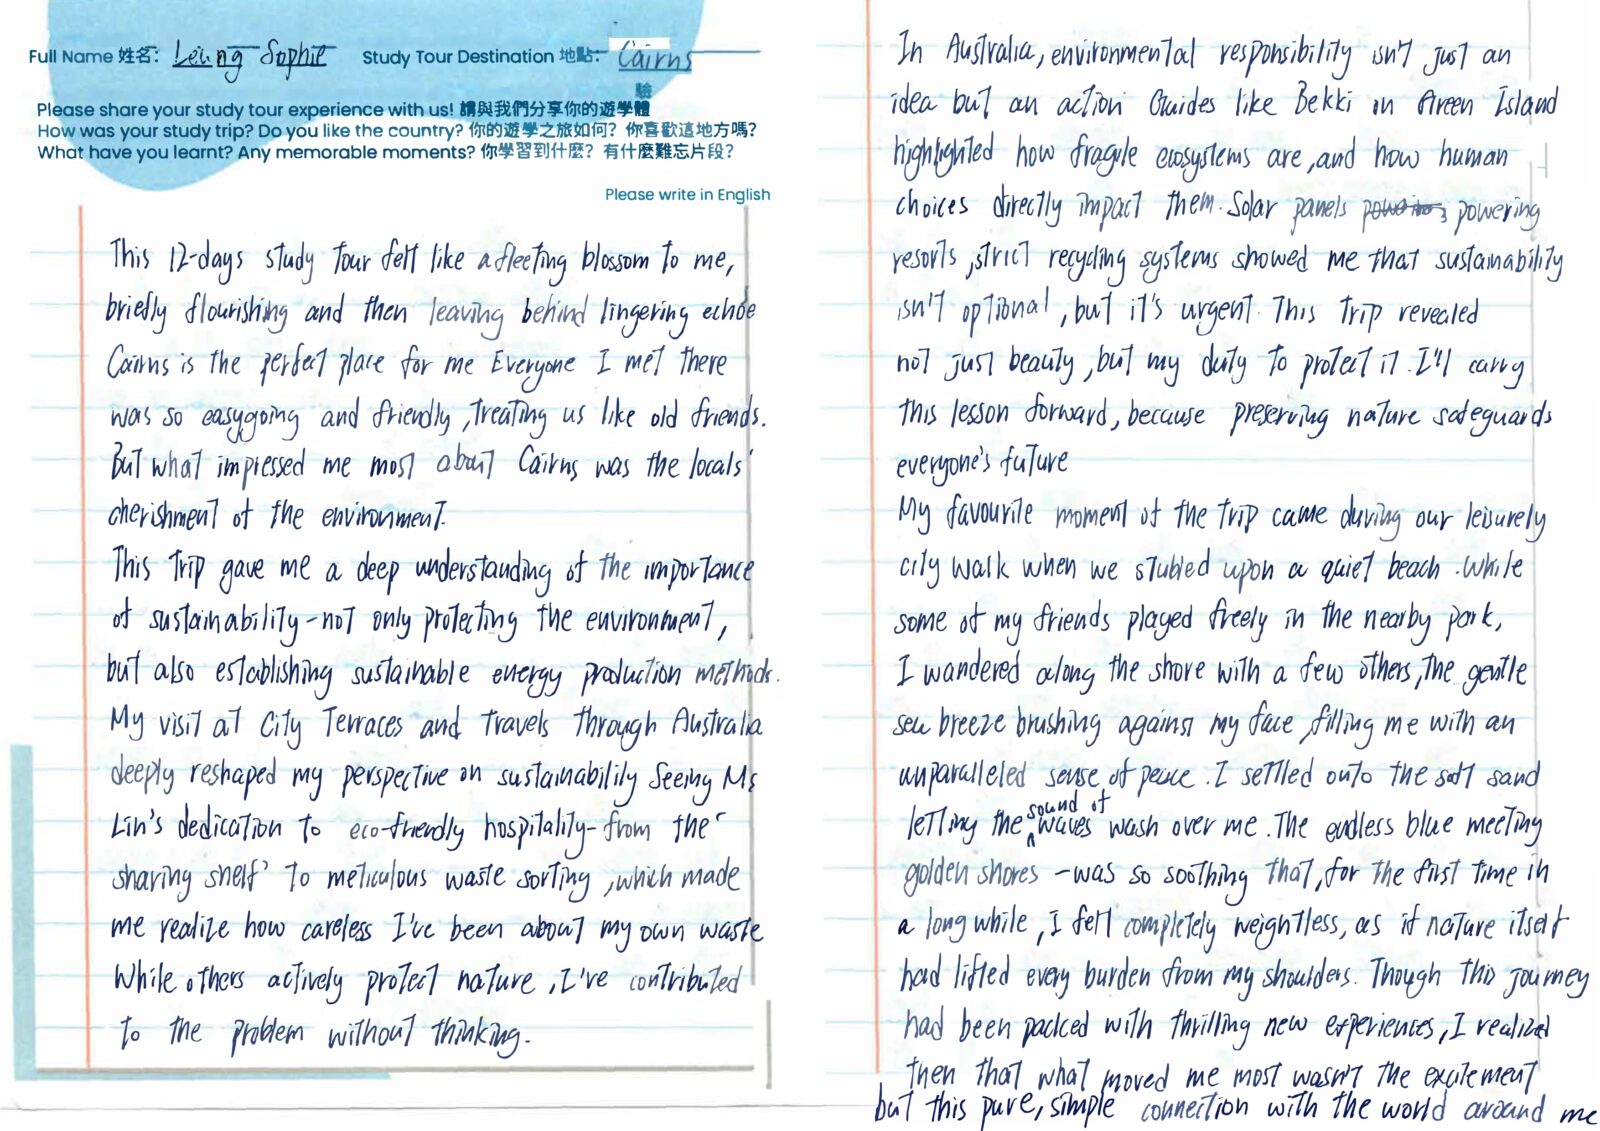 Full Name 姓名: Leung Sophie Study Tour Destination 地點: Cairns
Please share your study tour experience with us! 請與我們分享你的遊學體驗
How was your study trip? Do you like the country? 你的遊學之旅如何? 你喜歡這地方嗎?
What have you learnt? Any memorable moments? 你學習到什麼? 有什麼難忘片段?
Please write in English
This 12-days study tour felt like a fleeting blossom to me,
briefly flourishing and then leaving behind lingering echoe
Cairns is the perfect place for me Everyone I met there
was so easygoing and friendly, treating us like old friends.
But what impressed me most about Cairns was the locals'
cherishment of the environment.
This trip gave me a deep understanding of the importance
of sustainability-not only protecting the environment,
but also establishing sustainable energy production methods.
My visit at City Terraces and travels through Australia
deeply reshaped my perspective on sustainability Seeing Ms
Lin's dedication to eco-friendly hospitality-from the '
sharing shelf' to meticulous waste sorting, which made
me realize how careless I've been about my own waste
While others actively protect nature, I've contributed
to the problem without thinking.
In Australia, environmental responsibility isn't just an
idea but an action Guides like Bekki in Green Island
highlighted how fragile ecosystems are, and how human
choices directly impact them. Solar panels powering
resorts, strict recycling systems showed me that sustainability
isn't optional, but it's urgent. This trip revealed
not just beauty, but my duty to protect it. I'll carry
this lesson forward, because preserving nature safeguards
everyone's future
My favourite moment of the trip came during our leisurely
city walk when we stubled upon a quiet beach. While
some of my friends played freely in the nearby park,
I wandered along the shore with a few others, the gentle
sea breeze brushing against my face, filling me with an
unparalleled sense of peace. I settled onto the soft sand
letting the sound of waves wash over me. The endless blue meeting
golden shores -was so soothing that, for the first time in
a long while, I felt completely weightless, as if nature itself
had lifted every burden from my shoulders. Though this journey
had been packed with thrilling new experiences, I realized
then that what moved me most wasn't the excitement
but this pure, simple connection with the world around me